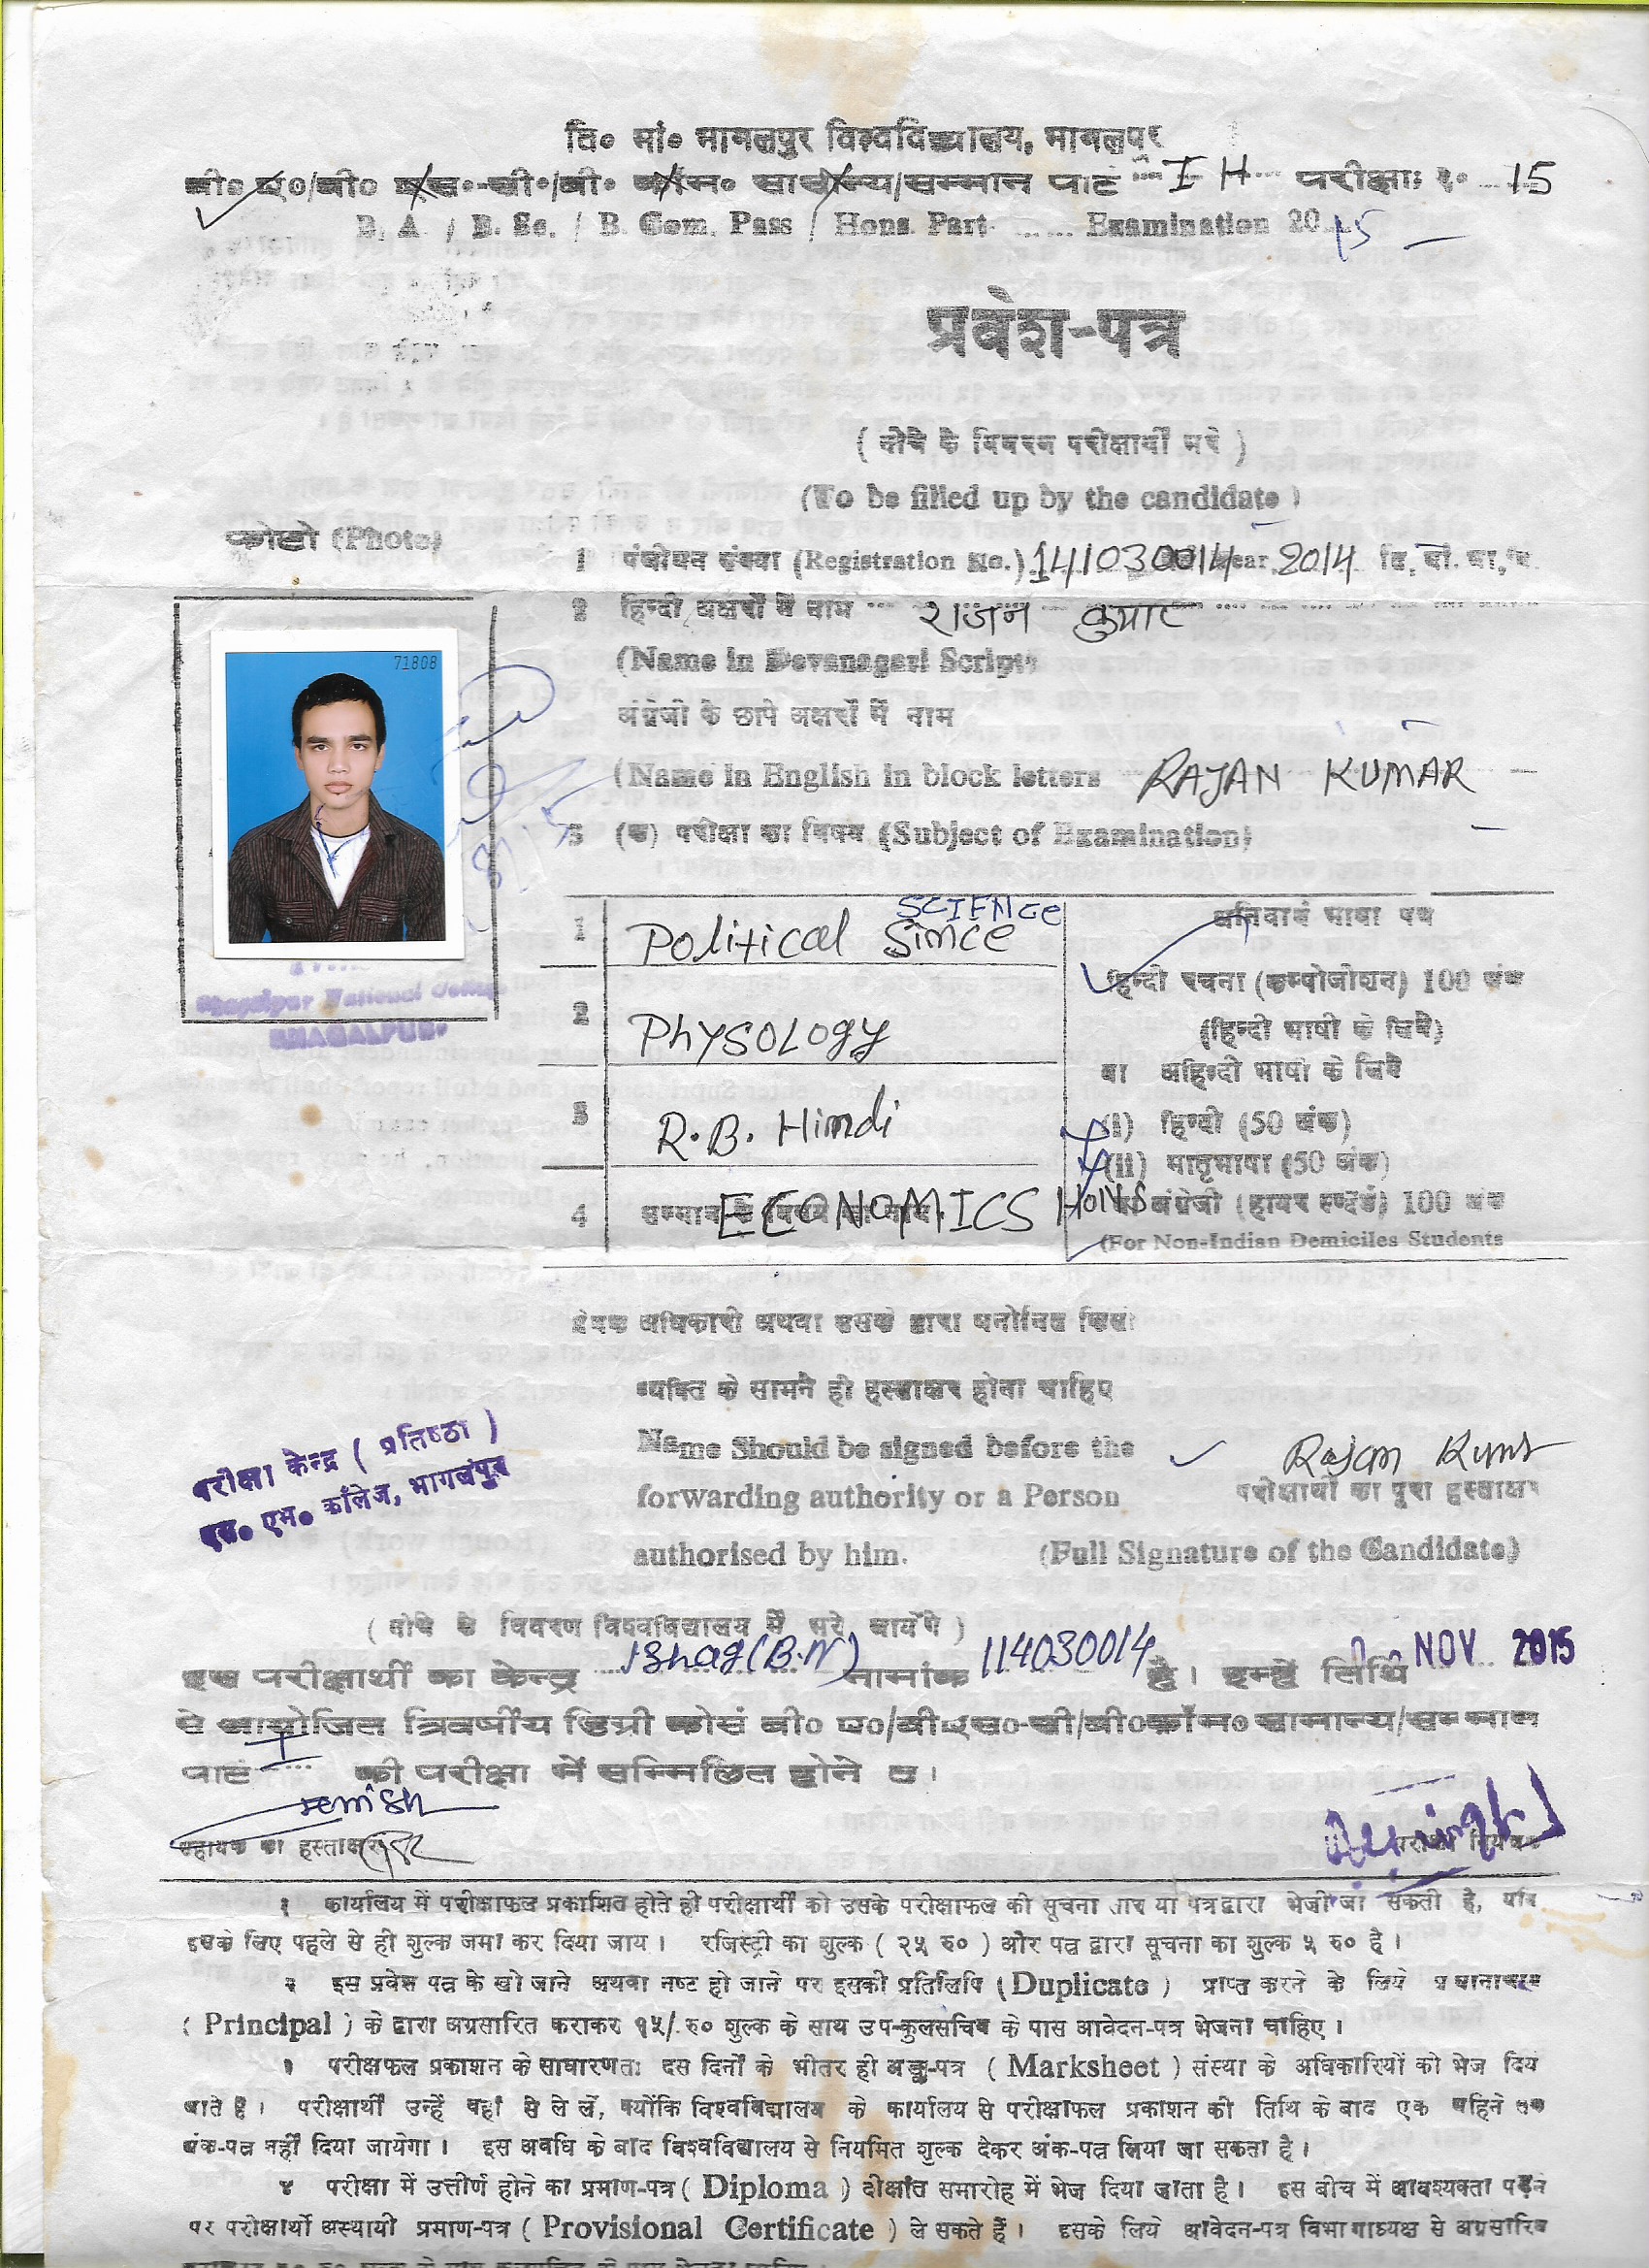 ति० मां० भागलपुर विश्वविद्यालय, भागलपुर
बी० ए०/बी० एस-सी०/बी० कॉम० सामान्य/सम्मान पार्ट I H परीक्षा १० 15
B. A. / B. Sc. / B. Com. Pass / Hons. Part ...... Examination 20 15
प्रवेश-पत्र
( नीचे के विवरण परीक्षार्थी भरे )
(To be filled up by the candidate)
फोटो (Photo)
1 पंजीयन संख्या (Registration No.) 141030014 Year 2014 ति. मां. भा. वि.
2 हिन्दी अक्षरों में नाम राजन कुमार
(Name in Devanagari Script)
71808
अंग्रेजी के छापे अक्षरों में नाम
(Name in English in block letters RAJAN KUMAR
3 (क) परीक्षा का विषय (Subject of Examination)
1 Political Since SCIENCE
2 Physology
3 R.B. Hindi
4 सम्मान के विषय का नाम ECONOMICS HONS
अनिवार्य भाषा पत्र
हिन्दी रचना (कम्पोजीशन) 100 अंक
(हिन्दी भाषी के लिये)
वा अहिन्दी भाषी के लिये
(i) हिन्दी (50 अंक)
(ii) मातृभाषा (50 अंक)
अंग्रेजी 100 अंक
(For Non-Indian Demiciles Students
National College
BHAGALPUR.
प्रेषक अधिकारी अथवा उसके द्वारा मनोनित किसी
व्यक्ति के सामने ही हस्ताक्षर होना चाहिए
Name Should be signed before the
forwarding authority or a Person
authorised by him.
Rajan Kumar
परीक्षार्थी का पूरा हस्ताक्षर
(Full Signature of the Candidate)
परीक्षा केन्द्र ( प्रतिष्ठा )
एस० एम० कॉलेज, भागलपुर
( नीचे के विवरण विश्वविद्यालय में भरे जायेंगे )
इस परीक्षार्थी का केन्द्र Bhag (B.N) नामांक 114030014 है। इन्हें तिथि NOV 2015
से आयोजित त्रिवर्षीय डिग्री कोर्स बी० ए०/बी एस०-सी/बी०कॉम० सामान्य/सम्मान
पार्ट I की परीक्षा में सम्मिलित होने द।
सहायक का हस्ताक्षर
परीक्षा नियंत्रक
१ कार्यालय में परीक्षाफल प्रकाशित होते ही परीक्षार्थी को उसके परीक्षाफल की सूचना तार या पत्रद्वारा भेजी जा सकती है, यदि
इसके लिए पहले से ही शुल्क जमा कर दिया जाय। रजिस्ट्री का शुल्क ( २५ रु० ) और पत्र द्वारा सूचना का शुल्क ५ रु० है।
२ इस प्रवेश पत्र के खो जाने अथवा नष्ट हो जाने पर इसकी प्रतिलिपि (Duplicate) प्राप्त करने के लिये प्रधानाचार्य
( Principal ) के द्वारा अग्रसारित कराकर १५/-रु० शुल्क के साथ उप-कुलसचिव के पास आवेदन-पत्र भेजना चाहिए।
३ परीक्षफल प्रकाशन के साधारणतः दस दिनों के भीतर ही अङ्क-पत्र ( Marksheet ) संस्था के अधिकारियों को भेज दिये
जाते है। परीक्षार्थी उन्हें वहां से ले लें, क्योंकि विश्वविद्यालय के कार्यालय से परीक्षाफल प्रकाशन की तिथि के बाद एक महिने तक
अंक-पत्र नहीं दिया जायेगा। इस अवधि के बाद विश्वविद्यालय से नियमित शुल्क देकर अंक-पत्र लिया जा सकता है।
४ परीक्षा में उत्तीर्ण होने का प्रमाण-पत्र ( Diploma ) दीक्षांत समारोह में भेज दिया जाता है। इस बीच में आवश्यकता पड़ने
पर परीक्षार्थी अस्थायी प्रमाण-पत्र ( Provisional Certificate ) ले सकते हैं। इसके लिये आवेदन-पत्र विभागाध्यक्ष से अग्रसारित